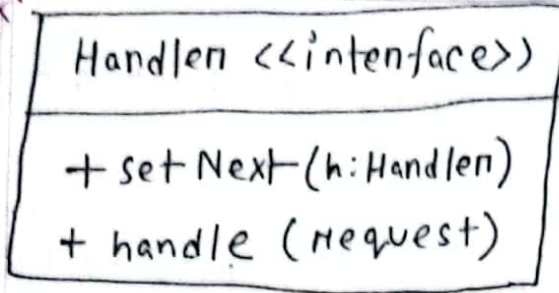 Handler <<interface>>
+ setNext(h:Handler)
+ handle (request)